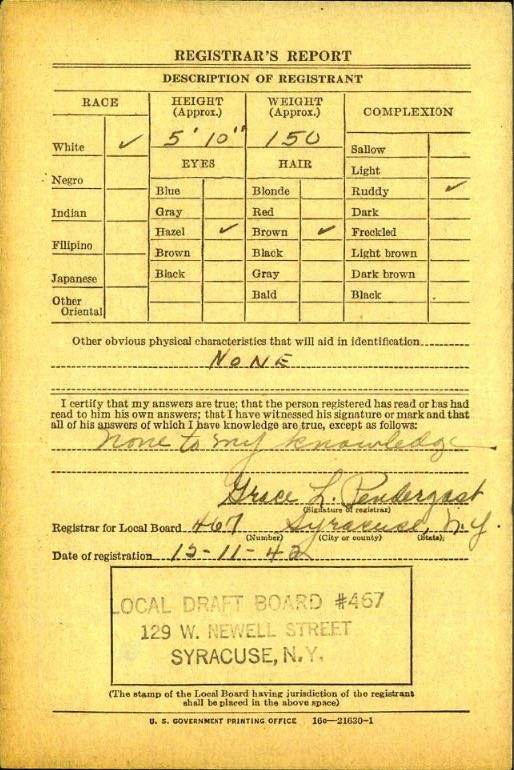 REGISTRAR'S REPORT
DESCRIPTION OF REGISTRANT
RACE
HEIGHT
(Approx.)
WEIGHT
(Approx.)
COMPLEXION
White ✓
5' 10"
150
Sallow
EYES
HAIR
Light
Negro
Blue
Blonde
Ruddy ✓
Indian
Gray
Red
Dark
Hazel ✓
Brown ✓
Freckled
Filipino
Brown
Black
Light brown
Japanese
Black
Gray
Dark brown
Other
Oriental
Bald
Black
Other obvious physical characteristics that will aid in identification
NONE
I certify that my answers are true; that the person registered has read or has had
read to him his own answers; that I have witnessed his signature or mark and that
all of his answers of which I have knowledge are true, except as follows:
none to my knowledge
Grace L. Pendergast
(Signature of registrar)
Registrar for Local Board 467 Syracuse, N.Y.
(Number) (City or county) (State)
Date of registration 12-11-42
LOCAL DRAFT BOARD #467
129 W. NEWELL STREET
SYRACUSE, N.Y.
(The stamp of the Local Board having jurisdiction of the registrant
shall be placed in the above space)
U. S. GOVERNMENT PRINTING OFFICE 16c—21630-1